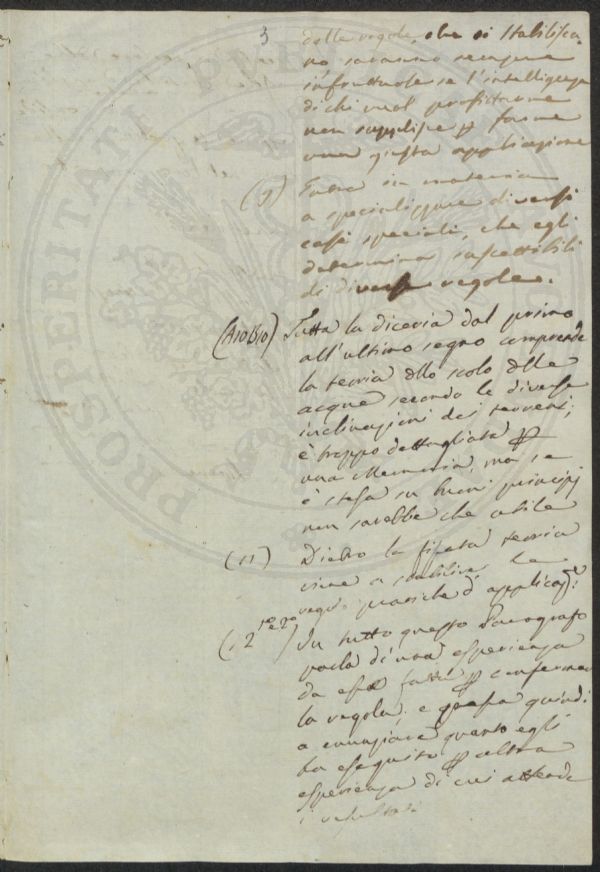 3
delle regole, che si stabilisca-
no, saranno sempre
infruttuose se l'intelligenza
di chi vuol profittarne
non supplisce p farne
una giusta applicazione
(9) Entra in materia
a specializzare diversi
casi speciali, che egli
determina suscettibili
di diverse regole.
(A10B10) Tutta la diceria dal primo
all'ultimo segno comprende
la teoria dllo scolo dlle
acque secondo le diverse
inclinazioni dei terreni;
è troppo dettagliata p
una Memoria, ma se
è stesa su buoni principj
non sarebbe che utile
(11) Dietro la fissata teoria
viene a stabilire le
regole pratiche d'applicaz.e
(12 1o e 2o) In tutto questo Paragrafo
parla di una esperienza
da esso fatta p confermar
la regola; e passa quindi
a enunziare quanto egli
ha eseguito p altra
esperienza di cui attende
i resultati
PROSPERITATI